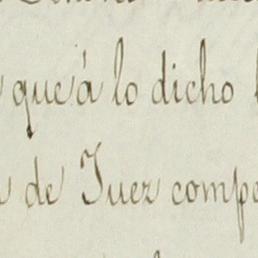 que á lo dicho
de Juez compe